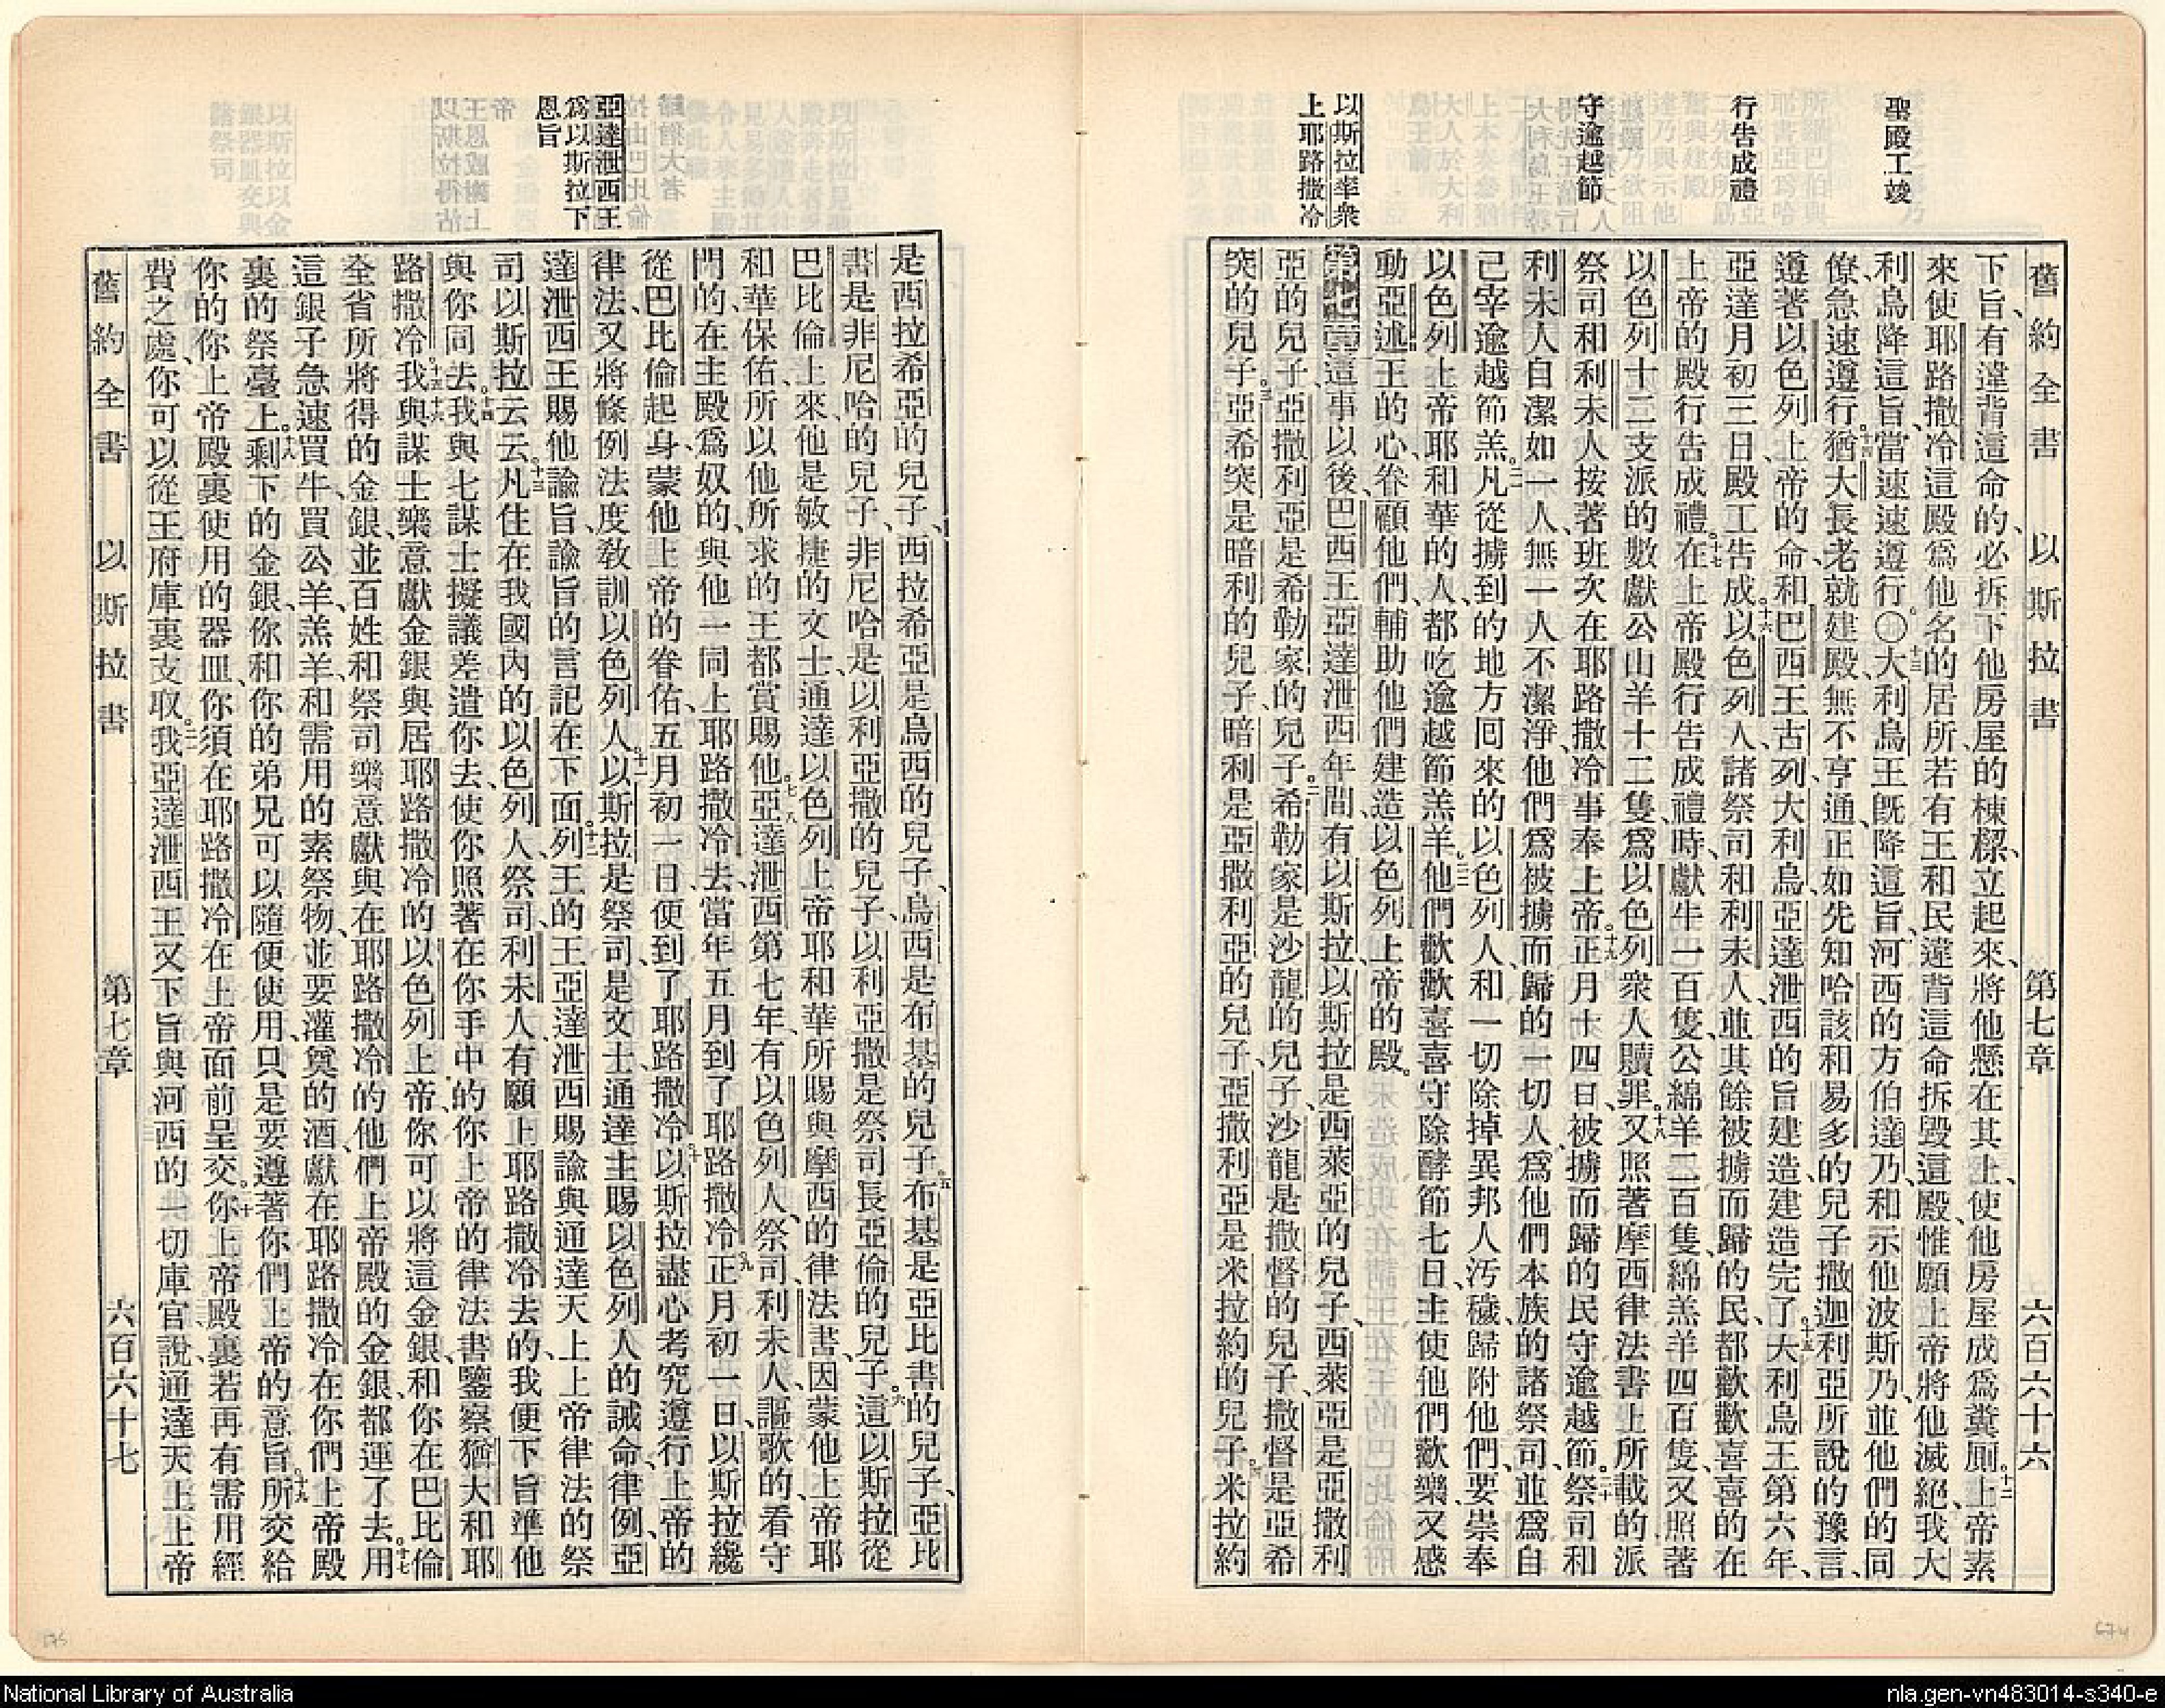 聖殿工竣
行告成禮
守逾越節
以斯拉率衆
上耶路撒冷
舊約全書 以斯拉書 第七章 六百六十六
下旨、有違背這命的、必拆下他房屋的棟樑、立起來、將他懸在其上、使他房屋成爲糞厠。十二上帝素
來使耶路撒冷這殿爲他名的居所、若有王和民、違背這命拆毀這殿、惟願上帝將他滅絕、我大
利烏降這旨、當速速遵行。〇十三大利烏王旣降這旨、河西的方伯達乃、和示他波斯乃、並他們的同
僚、急速遵行。十四猶大長老就建殿、無不亨通、正如先知哈該和易多的兒子撒迦利亞所說的豫言、
遵著以色列上帝的命、和巴西王古列大利烏亞達泄西的旨建造、建造完了。十五大利烏王第六年、
亞達月初三日、殿工告成。十六以色列人、諸祭司和利未人、並其餘被擄而歸的民、都歡歡喜喜的在
上帝的殿行告成禮。十七在上帝殿行告成禮時、獻牛一百隻、公綿羊二百隻、綿羔羊四百隻、又照著
以色列十二支派的數獻公山羊十二隻、爲以色列衆人贖罪。十八又照著摩西律法書上所載的派
祭司和利未人、按著班次在耶路撒冷事奉上帝。十九正月十四日、被擄而歸的民守逾越節。二十祭司和
利未人自潔如一人、無一人不潔淨、他們爲被擄而歸的一切人、爲他們本族的諸祭司、並爲自
己宰逾越節羔。二一凡從擄到的地方回來的以色列人、和一切除掉異邦人汚穢、歸附他們、要崇奉
以色列上帝耶和華的人、都吃逾越節羔羊。二二他們歡歡喜喜守除酵節七日、主使他們歡樂、又感
動亞述王的心、眷顧他們、輔助他們建造以色列上帝的殿。
第七章這事以後、巴西王亞達泄西年間、有以斯拉、以斯拉是西萊亞的兒子、西萊亞是亞撒利
亞的兒子、亞撒利亞是希勒家的兒子、二希勒家是沙龍的兒子、沙龍是撒督的兒子、撒督是亞希
突的兒子、三亞希突是暗利的兒子、暗利是亞撒利亞的兒子、亞撒利亞是米拉約的兒子、四米拉約
亞達泄西王
爲以斯拉下
恩旨
是西拉希亞的兒子、西拉希亞是烏西的兒子、烏西是布基的兒子、五布基是亞比書的兒子、亞比
書是非尼哈的兒子、非尼哈是以利亞撒的兒子、以利亞撒是祭司長亞倫的兒子。六這以斯拉從
巴比倫上來、他是敏捷的文士、通達以色列上帝耶和華所賜與摩西的律法書、因蒙他上帝耶
和華保佑、所以他所求的王都賞賜他。七八亞達泄西第七年、有以色列人、祭司、利未人、謳歌的、看守
門的、在主殿爲奴的、與他一同上耶路撒冷去、當年五月到了耶路撒冷。九正月初一日、以斯拉纔
從巴比倫起身、蒙他上帝的眷佑、五月初一日、便到了耶路撒冷。十以斯拉盡心考究遵行上帝的
律法、又將條例法度敎訓以色列人。十一以斯拉是祭司、是文士、通達主賜以色列人的誡命、律例、亞
達泄西王賜他諭旨、諭旨的言記在下面。十二列王的王亞達泄西賜諭與通達天上上帝律法的祭
司以斯拉云云。十三凡住在我國內的以色列人、祭司、利未人、有願上耶路撒冷去的、我便下旨準他
與你同去。十四我與七謀士擬議差遣你去、使你照著在你手中的你上帝的律法書、鑒察猶大和耶
路撒冷。十五十六我與謀士樂意獻金銀與居耶路撒冷的以色列上帝、你可以將這金銀、和你在巴比倫
全省所將得的金銀、並百姓和祭司樂意獻與在耶路撒冷的他們上帝殿的金銀、都運了去。十七用
這銀子急速買牛、買公羊、羔羊、和需用的素祭物、並要灌奠的酒、獻在耶路撒冷在你們上帝殿
裏的祭臺上。十八剩下的金銀、你和你的弟兄可以隨便使用、只是要遵著你們上帝的意旨。十九所交給
你的你上帝殿裏使用的器皿、你須在耶路撒冷在上帝面前呈交。二十你上帝殿裏若再有需用經
費之處、你可以從王府庫裏支取。二一我亞達泄西王又下旨與河西的一切庫官說、通達天上上帝
舊約全書 以斯拉書 第七章 六百六十七
675
674
National Library of Australia
nla.gen-vn483014-s340-e